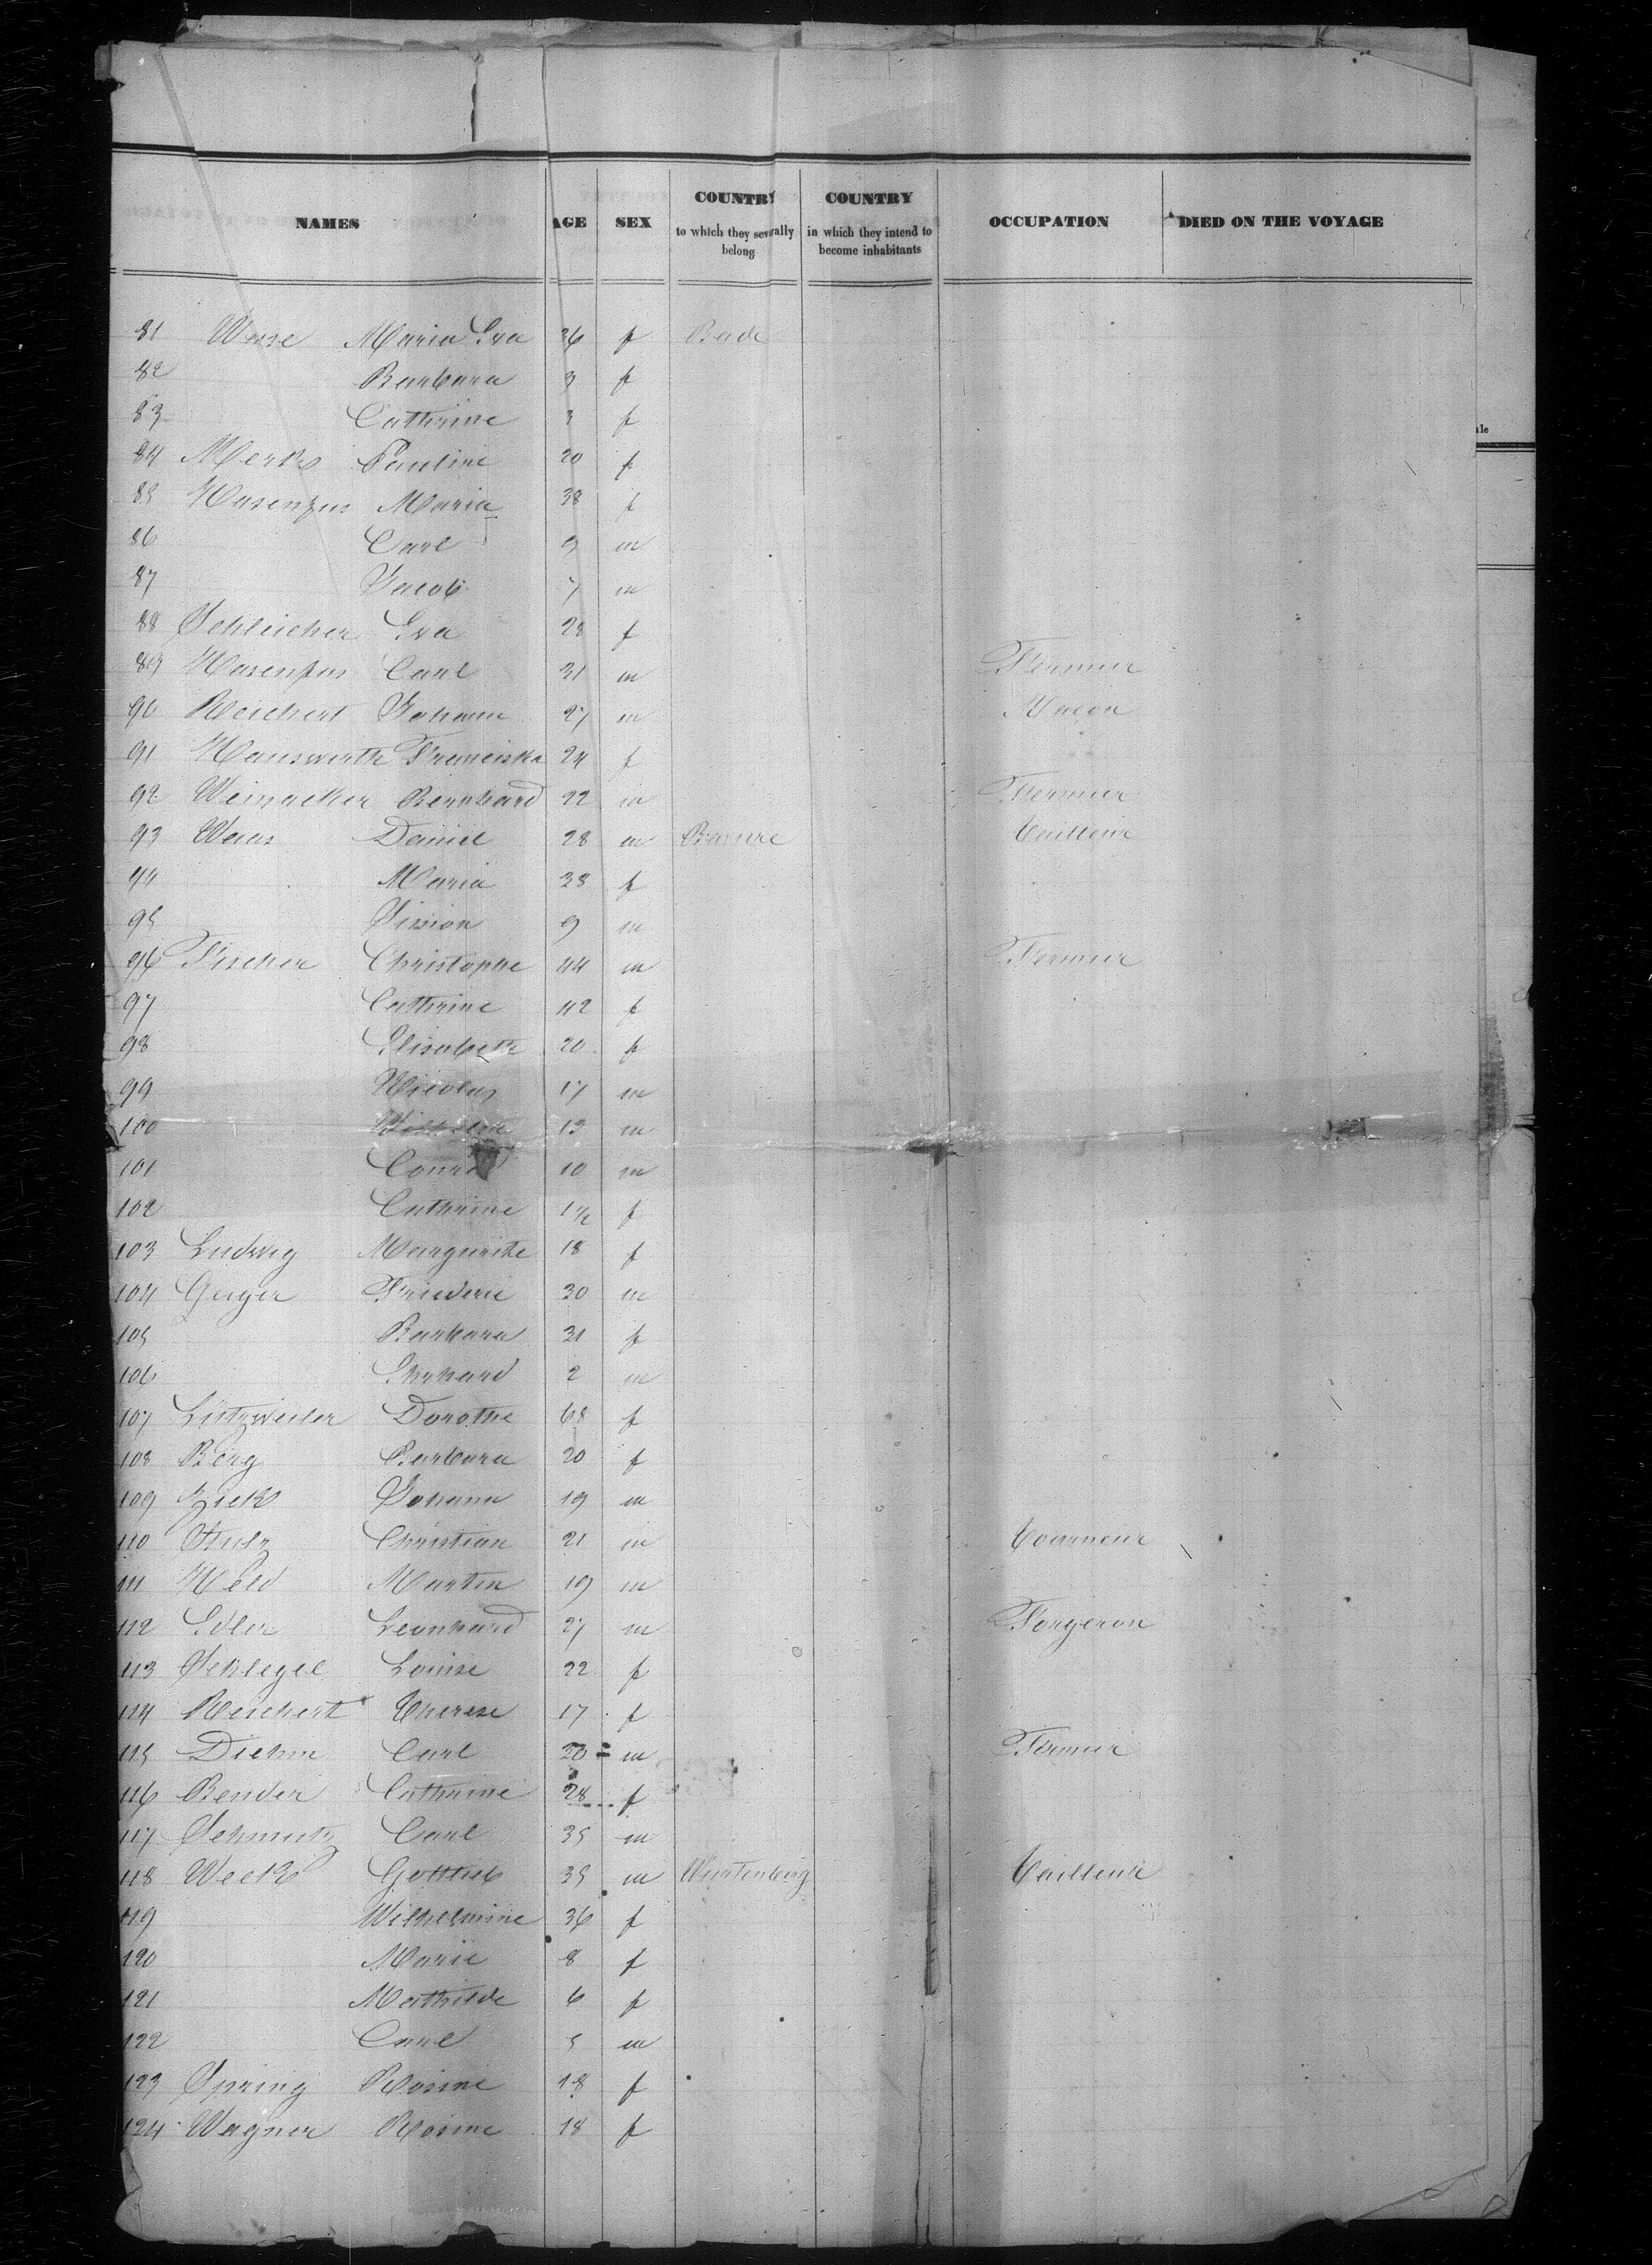 NAMES AGE SEX COUNTRY to which they severally belong COUNTRY in which they intend to become inhabitants OCCUPATION DIED ON THE VOYAGE
ale
81 Maria Eva 36 f Bade
82 Barbara 3 f
83 Cathrine 3 f
84 Merk Pauline 20 f
85 Hasenfus Maria 38 f
86 Carl 9 m
87 Jacob 7 m
88 Schleicher Eva 28 f
89 Hasenfus Carl 31 m Fermier
90 Reichert Johann 27 m Maçon
91 Hauswirth Franciska 24 f
92 Weinacker Bernhard 22 m Fermier
93 Daniel 28 m Baviere Tailleur
94 Maria 38 f
95 Simon 9 m
96 Fischer Christophe 44 m Fermier
97 Cathrine 42 f
98 Elisabeth 20 f
99 Nicolas 17 m
100 Wilhelm 13 m
101 Conrad 10 m
102 Cathrine 1 1/2 f
103 Ludwig Marguerite 18 f
104 Geiger Frederic 30 m
105 Barbara 31 f
106 Ehrhard 2 m
107 Dorothe 68 f
108 Berg Barbara 20 f
109 Zick Johann 19 m
110 Christian 21 m Tourneur
111 Held Martin 19 m
112 Edler Leonhard 27 m Forgeron
113 Schlegel Louise 22 f
114 Reichert Therese 17 f
115 Diehm Carl 20 m Fermier
116 Bender Cathrine 28 f
117 Schmutz Carl 35 m
118 Weck Gottlieb 35 m Wurtenberg Tailleur
119 Wilhelmine 36 f
120 Marie 8 f
121 Mathilde 6 f
122 Carl 5 m
123 Spring Rosine 18 f
124 Wagner Rosine 18 f